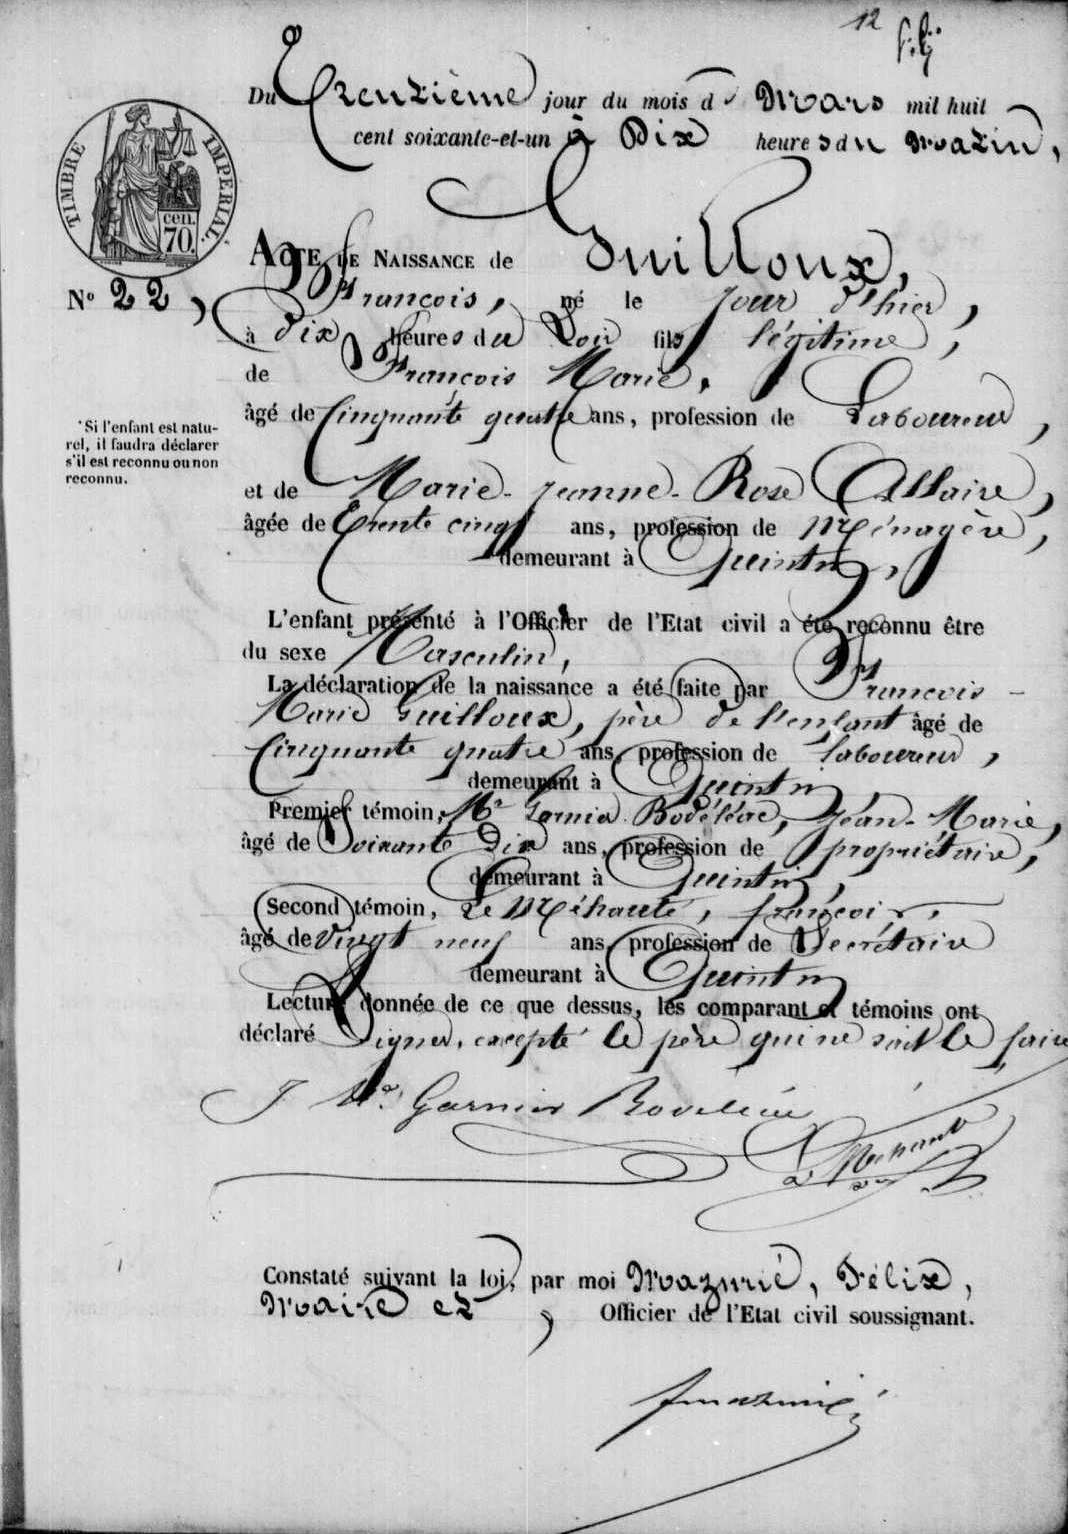 12
Du Treuzième jour du mois de Mars mil huit
cent soixante-et-un à Dix heures du Matin,
TIMBRE IMPERIAL.
cen.
70.
ACTE DE NAISSANCE de Guilloux,
N° 22,
François, né le jour d'hier,
à dix heures du Soir fils légitime,
de François Marie,
âgé de Cinquante quatre ans, profession de Laboureur,
*Si l'enfant est natu-
rel, il faudra déclarer
s'il est reconnu ou non
reconnu.
et de Marie-Jeanne-Rose Allaire,
âgée de Trente cinq ans, profession de Ménagère,
demeurant à Quintin,
L'enfant présenté à l'Officier de l'Etat civil a été reconnu être
du sexe Masculin,
La déclaration de la naissance a été faite par François-
Marie Guilloux, père de l'enfant âgé de
Cinquante quatre ans, profession de laboureur,
demeurant à Quintin,
Premier témoin, Mr Garnier Bodéléac, Jéan-Marie,
âgé de Soixante Dix ans, profession de propriétaire,
demeurant à Quintin,
Second témoin, Le Méhauté, françois,
âgé de Vingt neuf ans, profession de Secrétaire
demeurant à Quintin
Lecture donnée de ce que dessus, les comparant et témoins ont
déclaré Signer, excepté le père qui ne sait le faire
J. Mie Garnier Bodéléac
Le Mehauté
Constaté suivant la loi, par moi Mazurié, Félix,
Maire et, Officier de l'Etat civil soussignant.
fmazurié